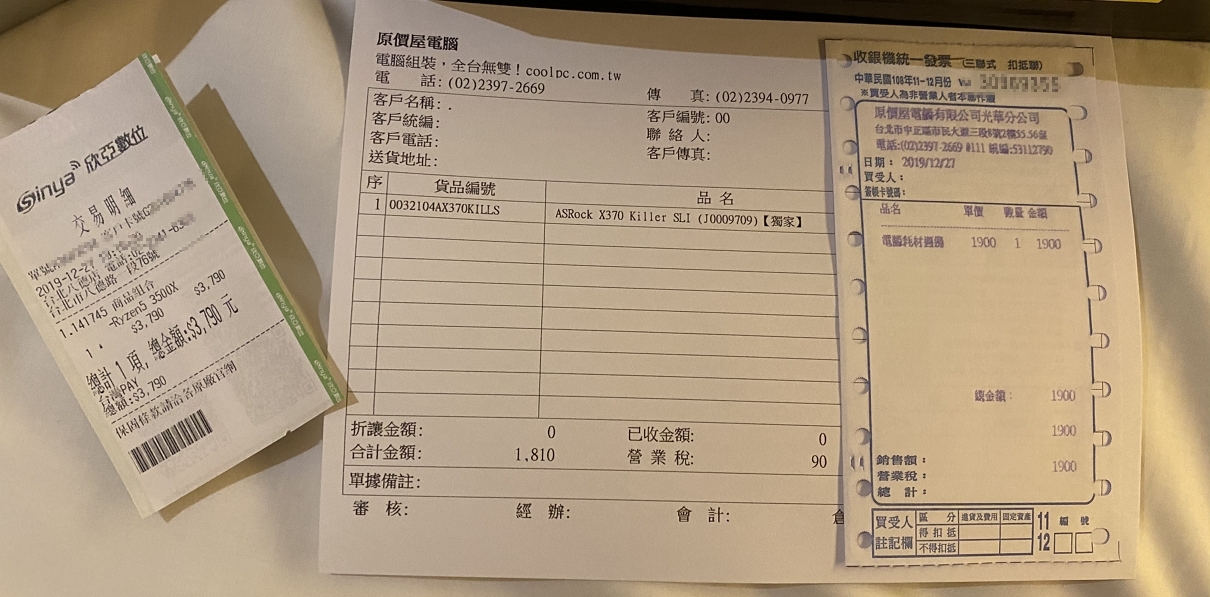 Sinya 欣亞數位
交易明細
單號
客戶卡號G2
2019-12-27
台北八德店 電話:02- 41-63
台北市八德路 段76號
1.141745 商品組合
-Ryzen5 3500X $3,790
1 * $3,790
總計 1 項, 總金額:$3,790 元
台灣PAY
總額:$3,790
保固條款請洽各原廠官網
原價屋電腦
電腦組裝，全台無雙！coolpc.com.tw
電 話：(02)2397-2669 傳 真：(02)2394-0977
客戶名稱：. 客戶編號：00
客戶統編： 聯 絡 人：
客戶電話： 客戶傳真：
送貨地址：
序 貨品編號 品 名
1 0032104AX370KILLS ASRock X370 Killer SLI (J0009709)【獨家】
折讓金額： 0 已收金額： 0
合計金額： 1,810 營 業 稅： 90
單據備註：
審 核： 經 辦： 會 計： 倉
收銀機統一發票 (三聯式 扣抵聯)
中華民國108年11-12月份
※買受人為非營業人者本聯作廢
原價屋電腦有限公司光華分公司
台北市中正區市民大道三段8號2樓55.56室
電話:(02)2397-2669 #111 統編:53112790
日期： 2019/12/27
買受人：
簽帳卡號碼：
品名 單價 數量 金額
電腦耗材週邊 1900 1 1900
總金額： 1900
1900
銷售額： 1900
營業稅：
總 計：
買受人註記欄
區 分 進貨及費用 固定資產
得 扣 抵
不得扣抵
11 編 號
12